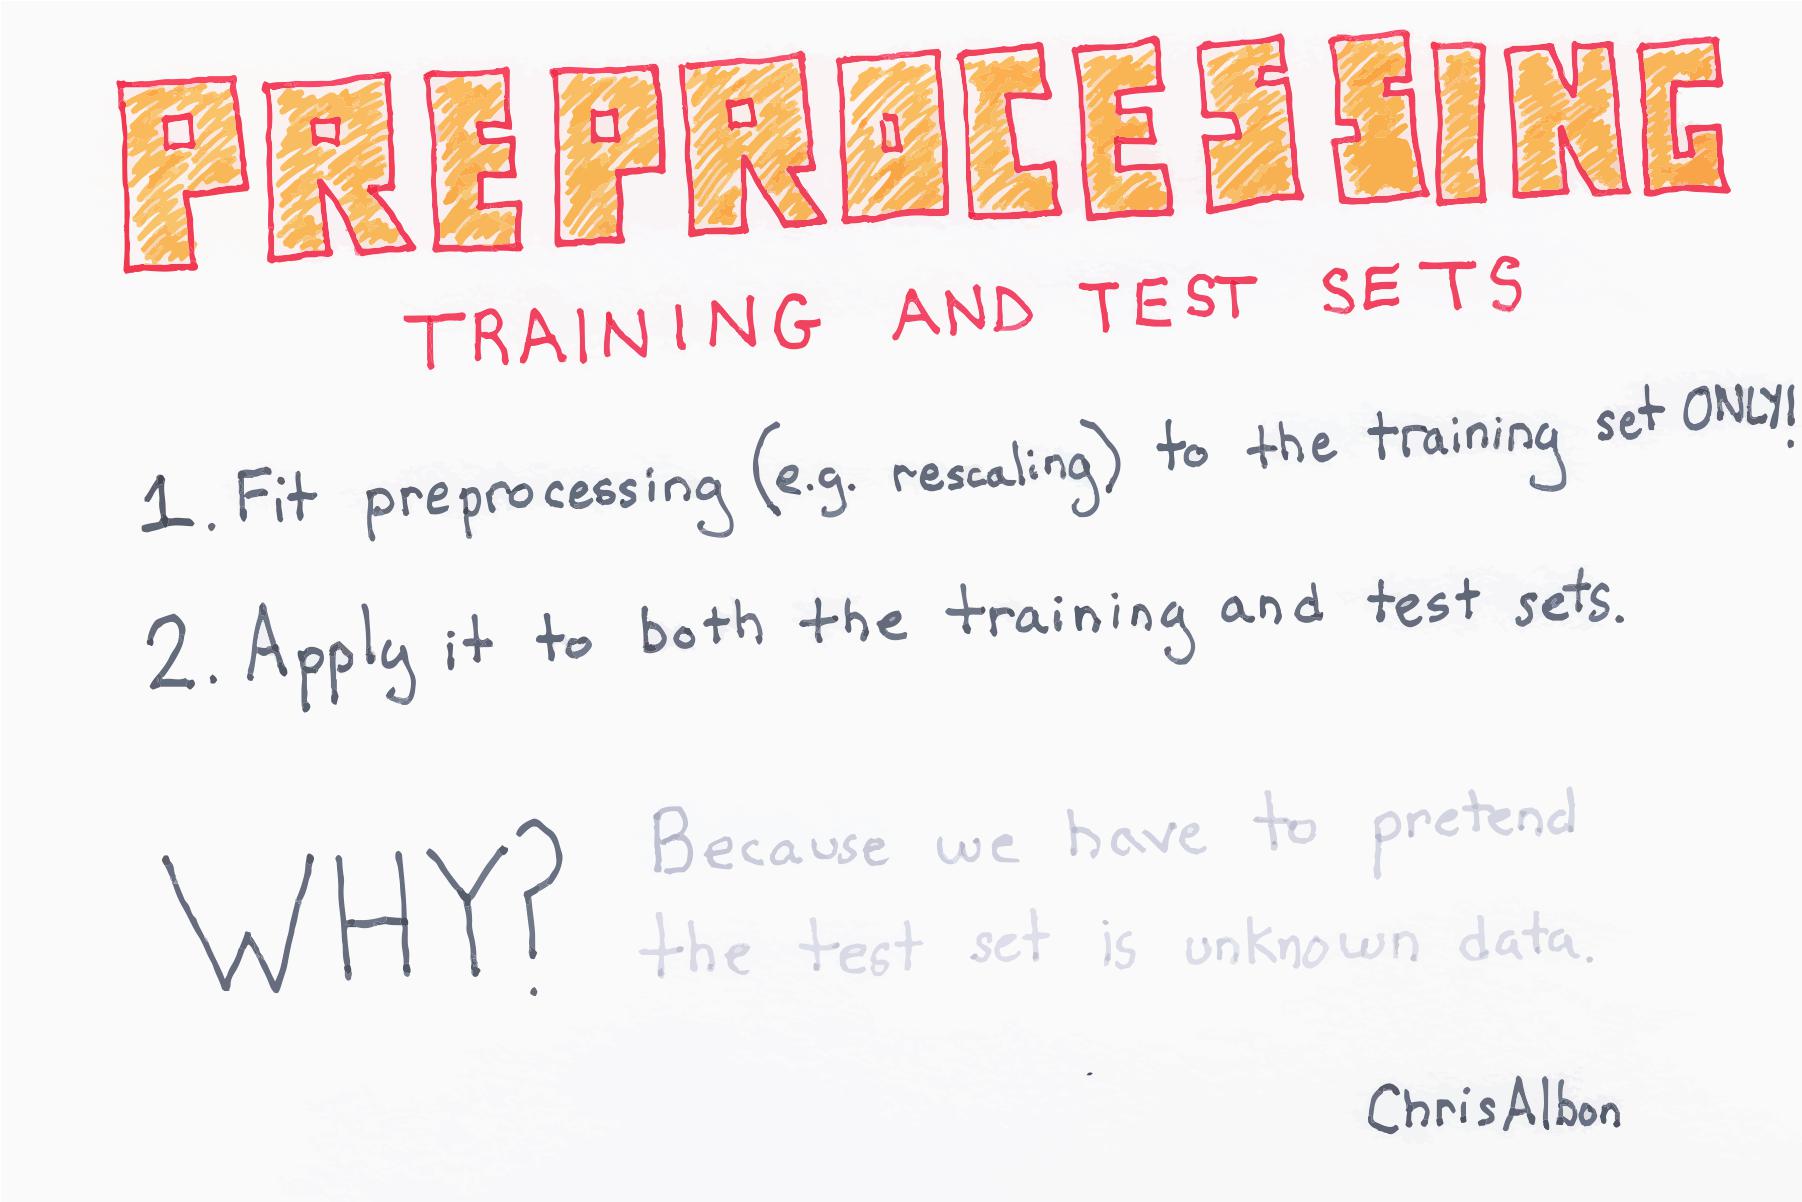 PREPROCESSING
TRAINING AND TEST SETS
1. Fit preprocessing (e.g. rescaling) to the training set ONLY!
2. Apply it to both the training and test sets.
WHY? Because we have to pretend
the test set is unknown data.
ChrisAlbon